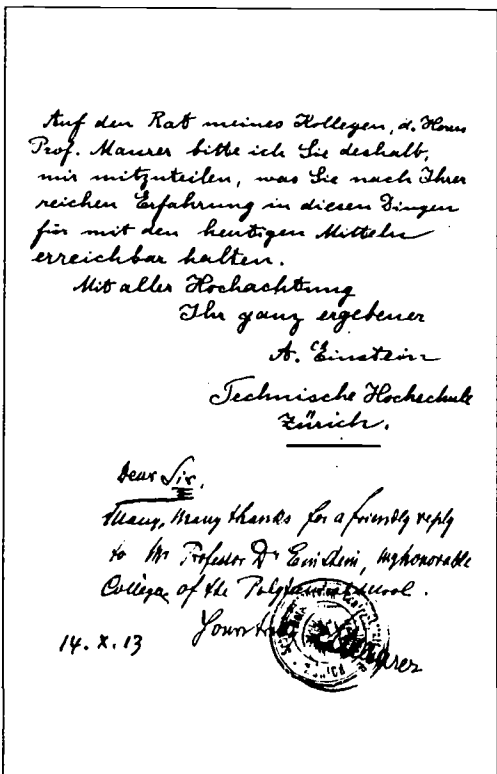 Auf den Rat meines Kollegen, d. Herrn
Prof. Maurer bitte ich Sie deshalb,
mir mitzuteilen, was Sie nach Ihrer
reichen Erfahrung in diesen Dingen
für mit den heutigen Mitteln
erreichbar halten.
Mit aller Hochachtung
Ihr ganz ergebener
A. Einstein
Technische Hochschule
Zürich.
Dear Sir,
Many, many thanks for a friendly reply
to Mr Professor Dr Einstein, my honorable
Collega of the
Yours
14. X. 13